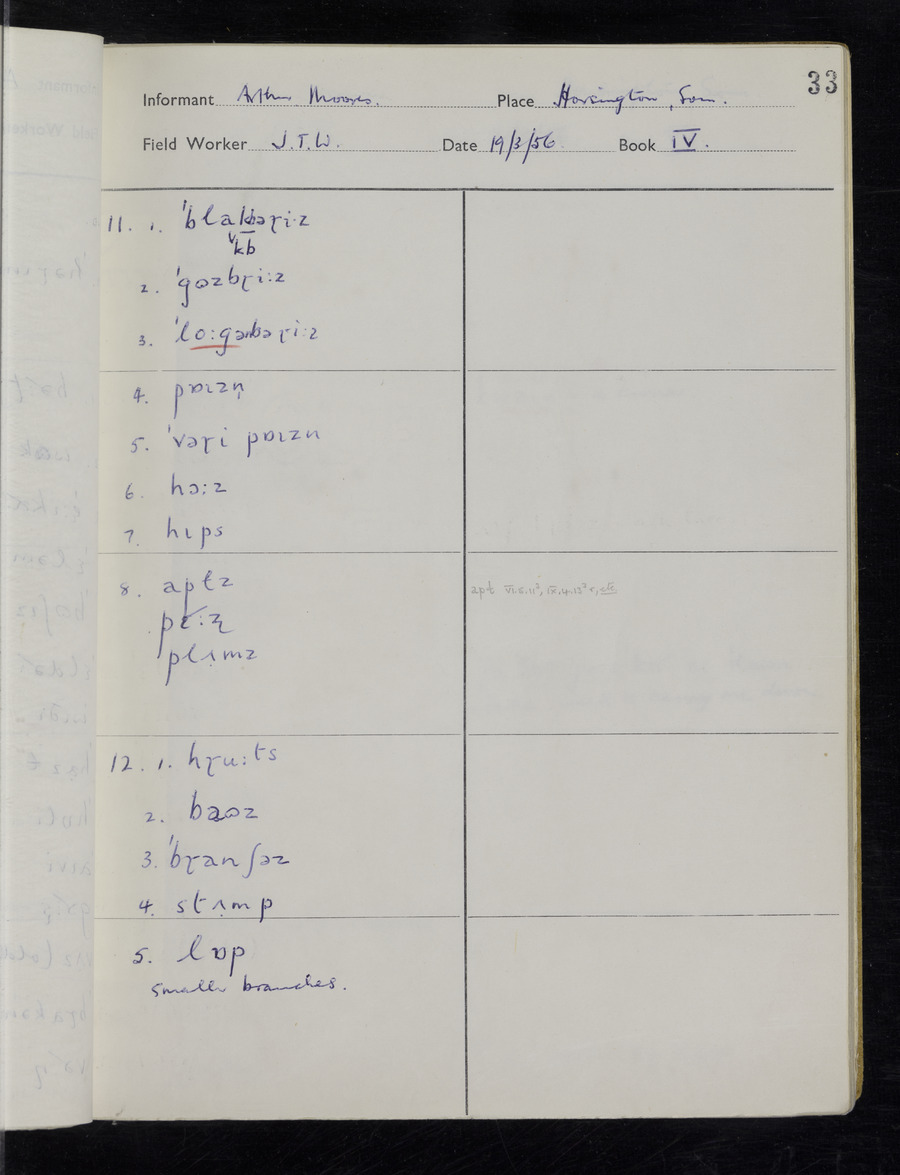 33
Informant Arthur Moores. Place Horsington, Som.
Field Worker J.T.W. Date 19/3/56 Book IV.
11. 1. ˈblakbəɽi·z
kb
2. ˈgɷzbɽi:z
3. ˈlo:gəɽbəɽi:z
4. pɒɪzn̩
5. ˈvəɽi pɒɪzn
6. hɔ:z
7. hɩps
8. apɫz apɫ VI.5.11², IX.4.13²+, etc
pɛ:ɽz
plʌmz
12. 1. hɽu:ts
2. baɷz
3. ˈbɽanʃəz
4. stʌmp
5. lɒp
smaller branches.